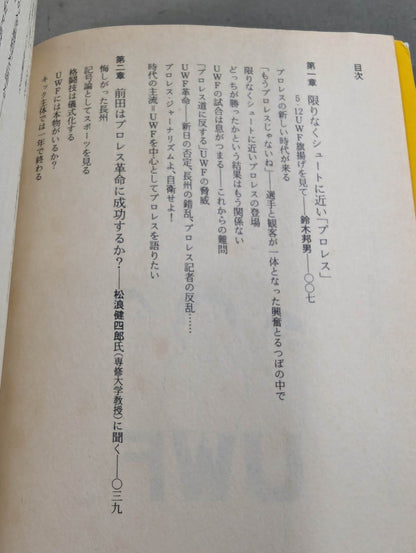 目次
第一章 限りなくシュートに近い「プロレス」
5・12UWF旗揚げを見て——鈴木邦男——〇〇七
プロレスの新しい時代が来る
「もうプロレスじゃないね」——選手と観客が一体となった興奮とるつぼの中で
限りなくシュートに近いプロレスの登場
どっちが勝ったかという結果はもう関係ない
UWFの試合は息がつまる!——これからの難問
「プロレス道に反する」UWFの脅威
UWF革命——新日の否定、長州の錯乱、プロレス記者の反乱……
プロレス・ジャーナリズムよ、自衛せよ!
時代の主流=UWFを中心としてプロレスを語りたい
第二章 前田はプロレス革命に成功するか?——松浪健四郎氏(専修大学教授)に聞く——〇三九
悔しがった長州
記号論としてスポーツを見る
格闘技は儀式化する
UWFには本物がいるか?
キック主体では一年で終わる